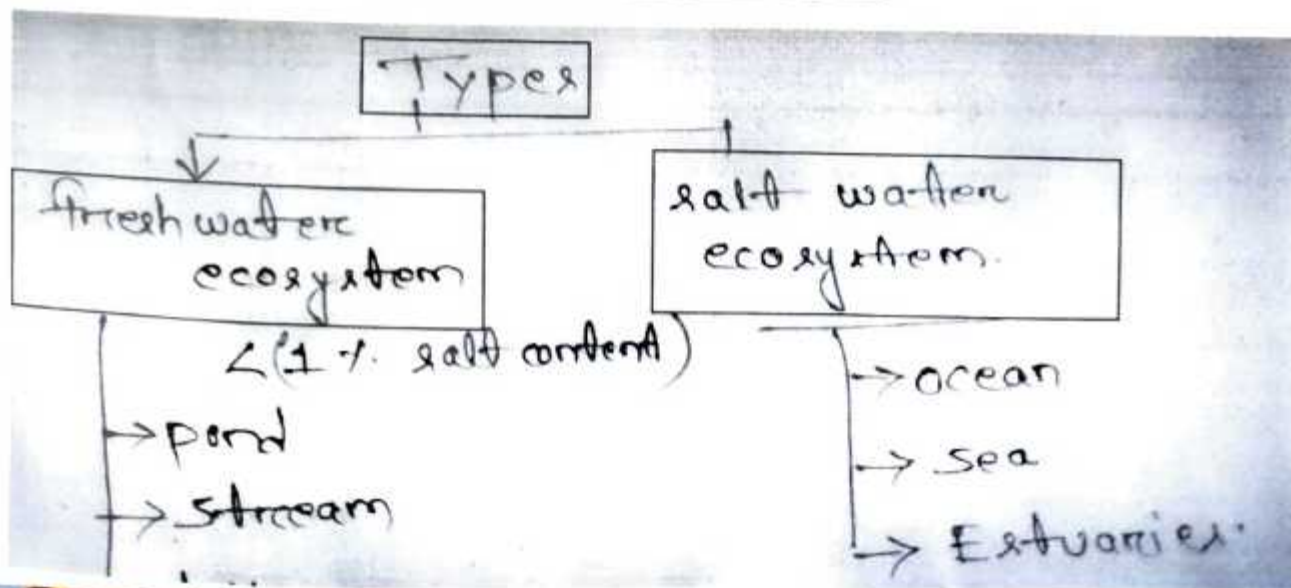 Types
freshwater
ecosystem
<(1 % salt content)
→ pond
→ stream
salt water
ecosystem.
→ ocean
→ sea
→ Estuaries.